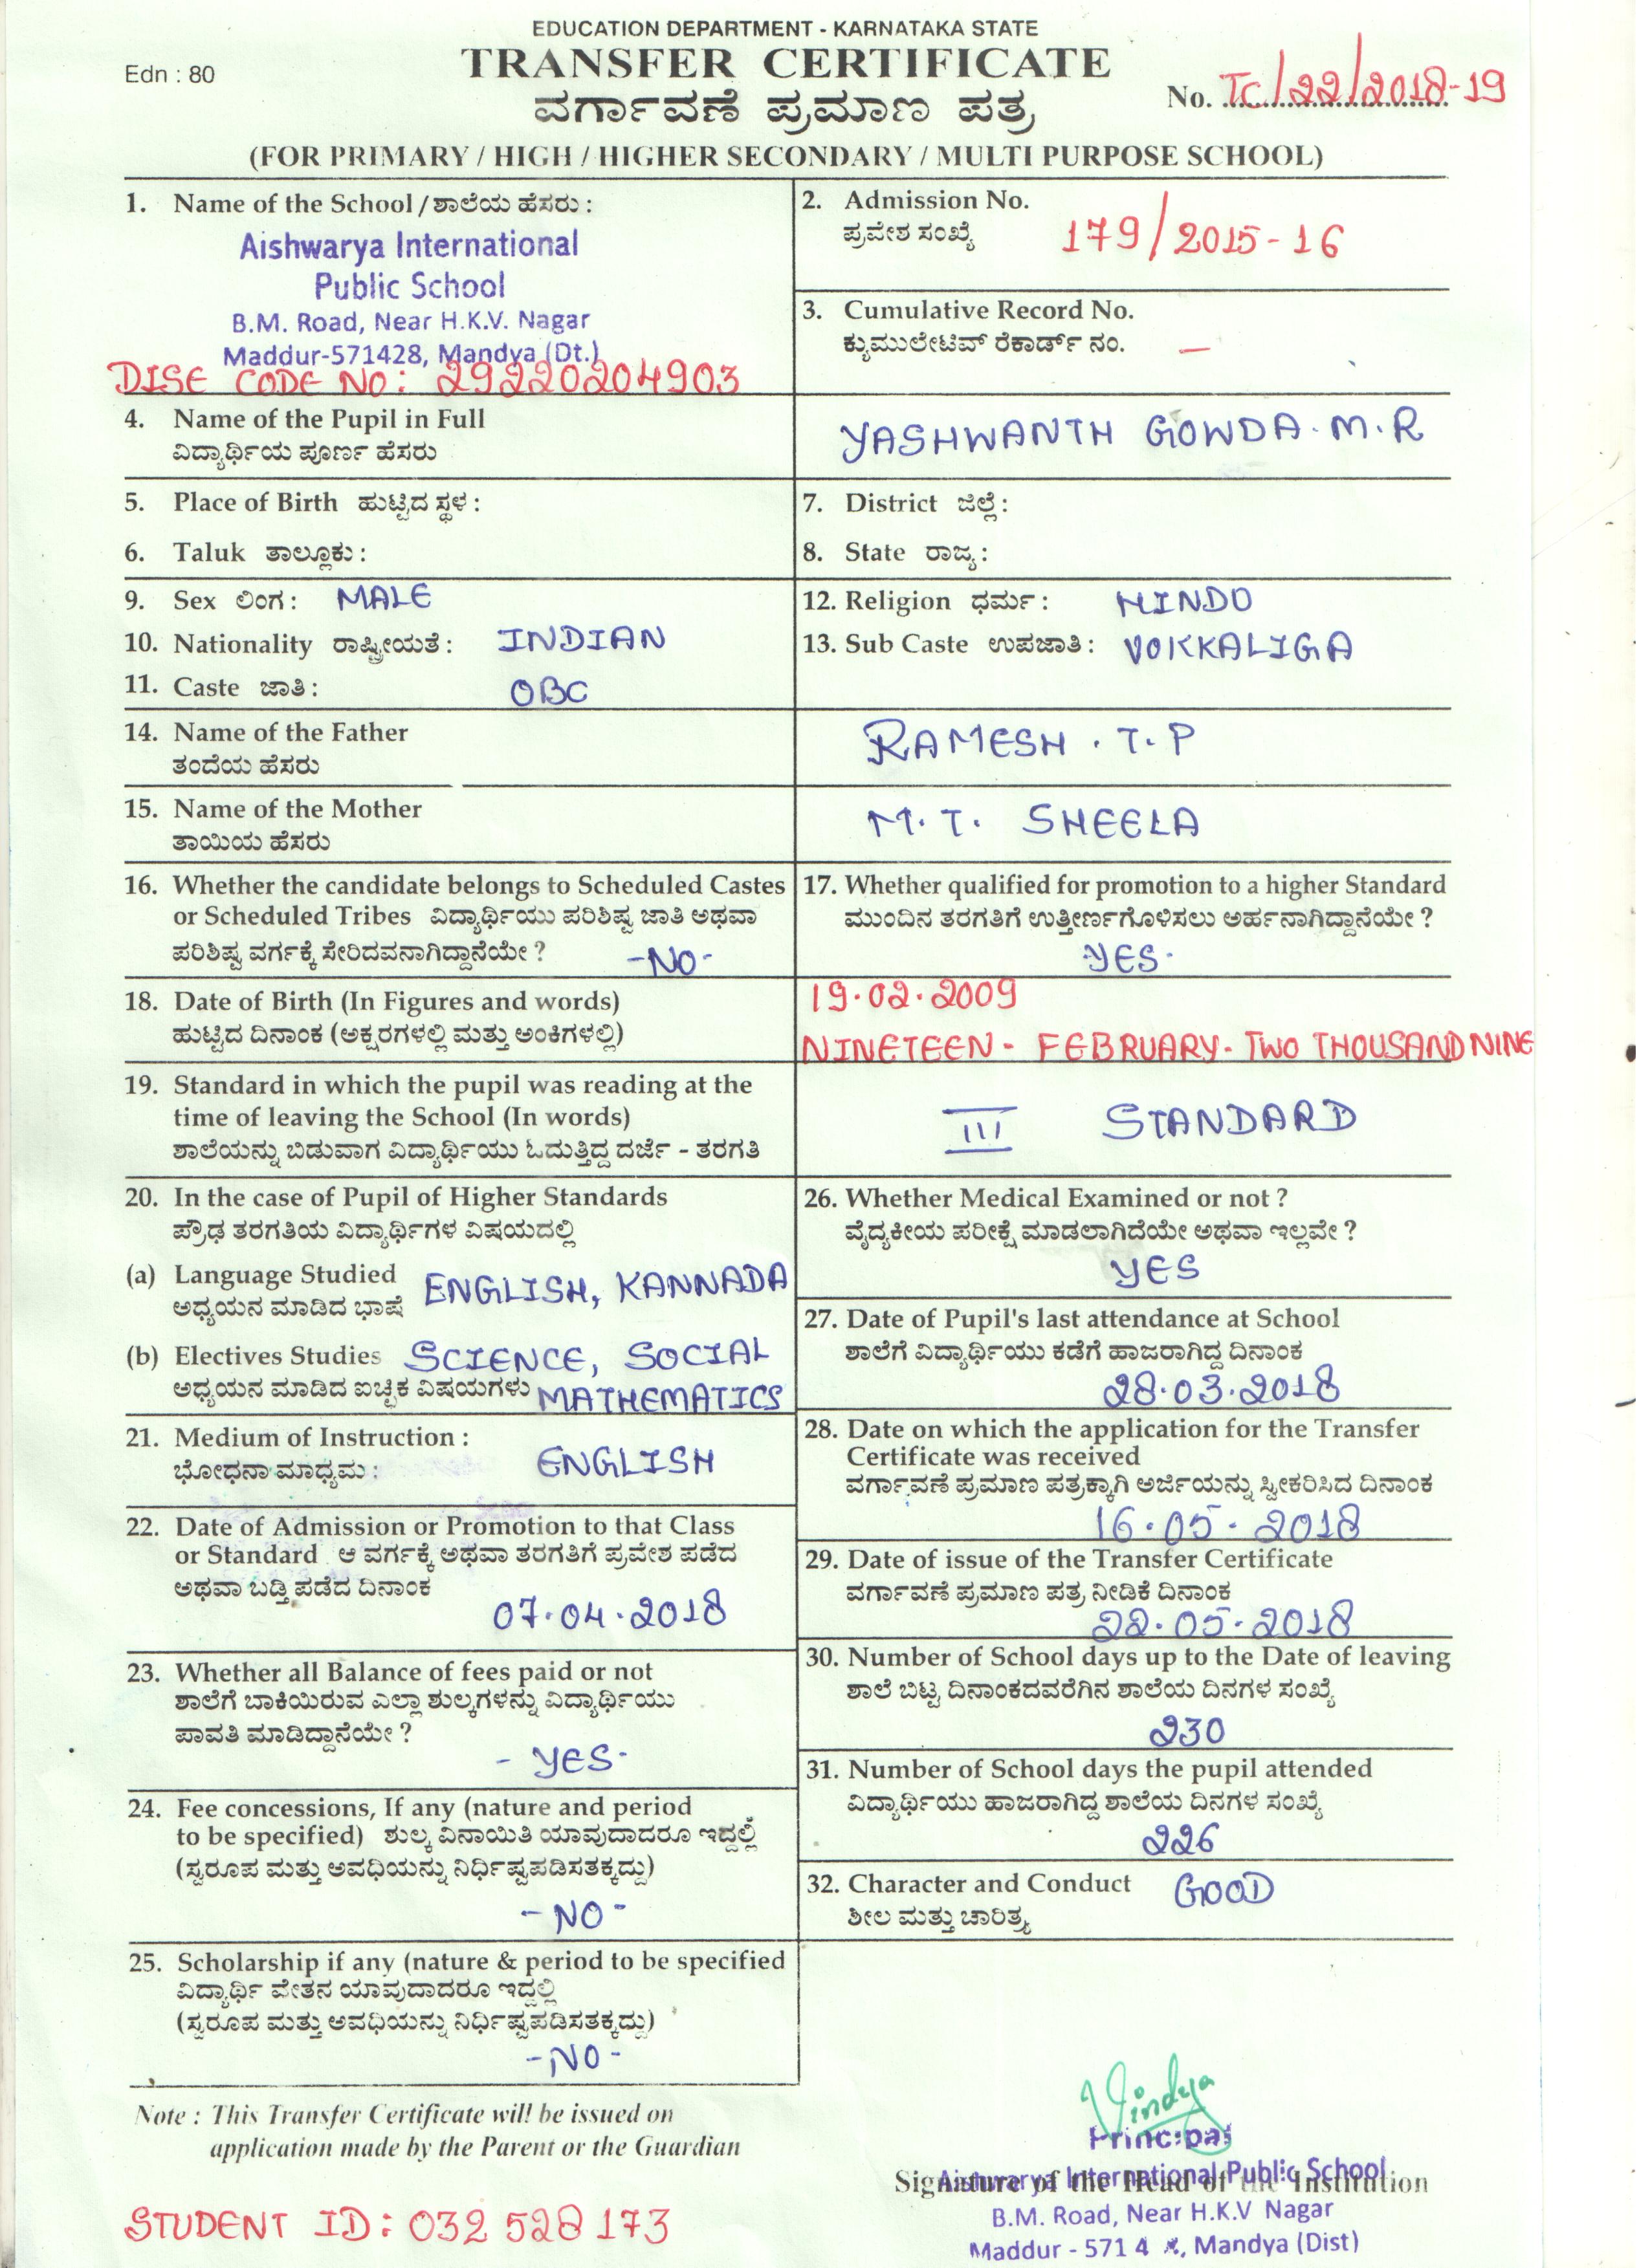 EDUCATION DEPARTMENT - KARNATAKA STATE
Edn : 80
TRANSFER CERTIFICATE
ವರ್ಗಾವಣೆ ಪ್ರಮಾಣ ಪತ್ರ
No. TC/22/2018-19
(FOR PRIMARY / HIGH / HIGHER SECONDARY / MULTI PURPOSE SCHOOL)
1. Name of the School / ಶಾಲೆಯ ಹೆಸರು :
Aishwarya International
Public School
B.M. Road, Near H.K.V. Nagar
Maddur-571428, Mandya (Dt.)
DISE CODE NO: 29220204903
2. Admission No.
ಪ್ರವೇಶ ಸಂಖ್ಯೆ 179/2015-16
3. Cumulative Record No.
ಕ್ಯುಮುಲೇಟಿವ್ ರೆಕಾರ್ಡ್ ನಂ. —
4. Name of the Pupil in Full
ವಿದ್ಯಾರ್ಥಿಯ ಪೂರ್ಣ ಹೆಸರು
YASHWANTH GOWDA.M.R
5. Place of Birth ಹುಟ್ಟಿದ ಸ್ಥಳ :
6. Taluk ತಾಲ್ಲೂಕು :
7. District ಜಿಲ್ಲೆ :
8. State ರಾಜ್ಯ :
9. Sex ಲಿಂಗ : MALE
10. Nationality ರಾಷ್ಟ್ರೀಯತೆ : INDIAN
11. Caste ಜಾತಿ : OBC
12. Religion ಧರ್ಮ : HINDO
13. Sub Caste ಉಪಜಾತಿ : VOKKALIGA
14. Name of the Father
ತಂದೆಯ ಹೆಸರು
RAMESH . T. P
15. Name of the Mother
ತಾಯಿಯ ಹೆಸರು
M. T. SHEELA
16. Whether the candidate belongs to Scheduled Castes
or Scheduled Tribes ವಿದ್ಯಾರ್ಥಿಯು ಪರಿಶಿಷ್ಟ ಜಾತಿ ಅಥವಾ
ಪರಿಶಿಷ್ಟ ವರ್ಗಕ್ಕೆ ಸೇರಿದವನಾಗಿದ್ದಾನೆಯೇ ? -NO-
17. Whether qualified for promotion to a higher Standard
ಮುಂದಿನ ತರಗತಿಗೆ ಉತ್ತೀರ್ಣಗೊಳಿಸಲು ಅರ್ಹನಾಗಿದ್ದಾನೆಯೇ ?
YES.
18. Date of Birth (In Figures and words)
ಹುಟ್ಟಿದ ದಿನಾಂಕ (ಅಕ್ಷರಗಳಲ್ಲಿ ಮತ್ತು ಅಂಕಿಗಳಲ್ಲಿ)
19.02.2009
NINETEEN - FEBRUARY - TWO THOUSAND NINE
19. Standard in which the pupil was reading at the
time of leaving the School (In words)
ಶಾಲೆಯನ್ನು ಬಿಡುವಾಗ ವಿದ್ಯಾರ್ಥಿಯು ಓದುತ್ತಿದ್ದ ದರ್ಜೆ - ತರಗತಿ
III STANDARD
20. In the case of Pupil of Higher Standards
ಪ್ರೌಢ ತರಗತಿಯ ವಿದ್ಯಾರ್ಥಿಗಳ ವಿಷಯದಲ್ಲಿ
(a) Language Studied ENGLISH, KANNADA
ಅಧ್ಯಯನ ಮಾಡಿದ ಭಾಷೆ
(b) Electives Studies SCIENCE, SOCIAL
ಅಧ್ಯಯನ ಮಾಡಿದ ಐಚ್ಚಿಕ ವಿಷಯಗಳು MATHEMATICS
21. Medium of Instruction :
ಭೋಧನಾ ಮಾಧ್ಯಮ : ENGLISH
22. Date of Admission or Promotion to that Class
or Standard ಆ ವರ್ಗಕ್ಕೆ ಅಥವಾ ತರಗತಿಗೆ ಪ್ರವೇಶ ಪಡೆದ
ಅಥವಾ ಬಡ್ತಿ ಪಡೆದ ದಿನಾಂಕ
07.04.2018
23. Whether all Balance of fees paid or not
ಶಾಲೆಗೆ ಬಾಕಿಯಿರುವ ಎಲ್ಲಾ ಶುಲ್ಕಗಳನ್ನು ವಿದ್ಯಾರ್ಥಿಯು
ಪಾವತಿ ಮಾಡಿದ್ದಾನೆಯೇ ?
- YES-
24. Fee concessions, If any (nature and period
to be specified) ಶುಲ್ಕ ವಿನಾಯಿತಿ ಯಾವುದಾದರೂ ಇದ್ದಲ್ಲಿ
(ಸ್ವರೂಪ ಮತ್ತು ಅವಧಿಯನ್ನು ನಿರ್ಧಿಷ್ಟಪಡಿಸತಕ್ಕದ್ದು)
-NO-
25. Scholarship if any (nature & period to be specified
ವಿದ್ಯಾರ್ಥಿ ವೇತನ ಯಾವುದಾದರೂ ಇದ್ದಲ್ಲಿ
(ಸ್ವರೂಪ ಮತ್ತು ಅವಧಿಯನ್ನು ನಿರ್ಧಿಷ್ಟಪಡಿಸತಕ್ಕದ್ದು)
-NO-
26. Whether Medical Examined or not ?
ವೈದ್ಯಕೀಯ ಪರೀಕ್ಷೆ ಮಾಡಲಾಗಿದೆಯೇ ಅಥವಾ ಇಲ್ಲವೇ ?
YES
27. Date of Pupil's last attendance at School
ಶಾಲೆಗೆ ವಿದ್ಯಾರ್ಥಿಯು ಕಡೆಗೆ ಹಾಜರಾಗಿದ್ದ ದಿನಾಂಕ
28.03.2018
28. Date on which the application for the Transfer
Certificate was received
ವರ್ಗಾವಣೆ ಪ್ರಮಾಣ ಪತ್ರಕ್ಕಾಗಿ ಅರ್ಜಿಯನ್ನು ಸ್ವೀಕರಿಸಿದ ದಿನಾಂಕ
16.05.2018
29. Date of issue of the Transfer Certificate
ವರ್ಗಾವಣೆ ಪ್ರಮಾಣ ಪತ್ರ ನೀಡಿಕೆ ದಿನಾಂಕ
22.05.2018
30. Number of School days up to the Date of leaving
ಶಾಲೆ ಬಿಟ್ಟ ದಿನಾಂಕದವರೆಗಿನ ಶಾಲೆಯ ದಿನಗಳ ಸಂಖ್ಯೆ
230
31. Number of School days the pupil attended
ವಿದ್ಯಾರ್ಥಿಯು ಹಾಜರಾಗಿದ್ದ ಶಾಲೆಯ ದಿನಗಳ ಸಂಖ್ಯೆ
226
32. Character and Conduct GOOD
ಶೀಲ ಮತ್ತು ಚಾರಿತ್ರ್ಯ
Note : This Transfer Certificate will be issued on
application made by the Parent or the Guardian
STUDENT ID: 032528173
Vindya
Principal
Aishwarya International Public School
Signature of the Head of the Institution
B.M. Road, Near H.K.V Nagar
Maddur - 571 4 , Mandya (Dist)